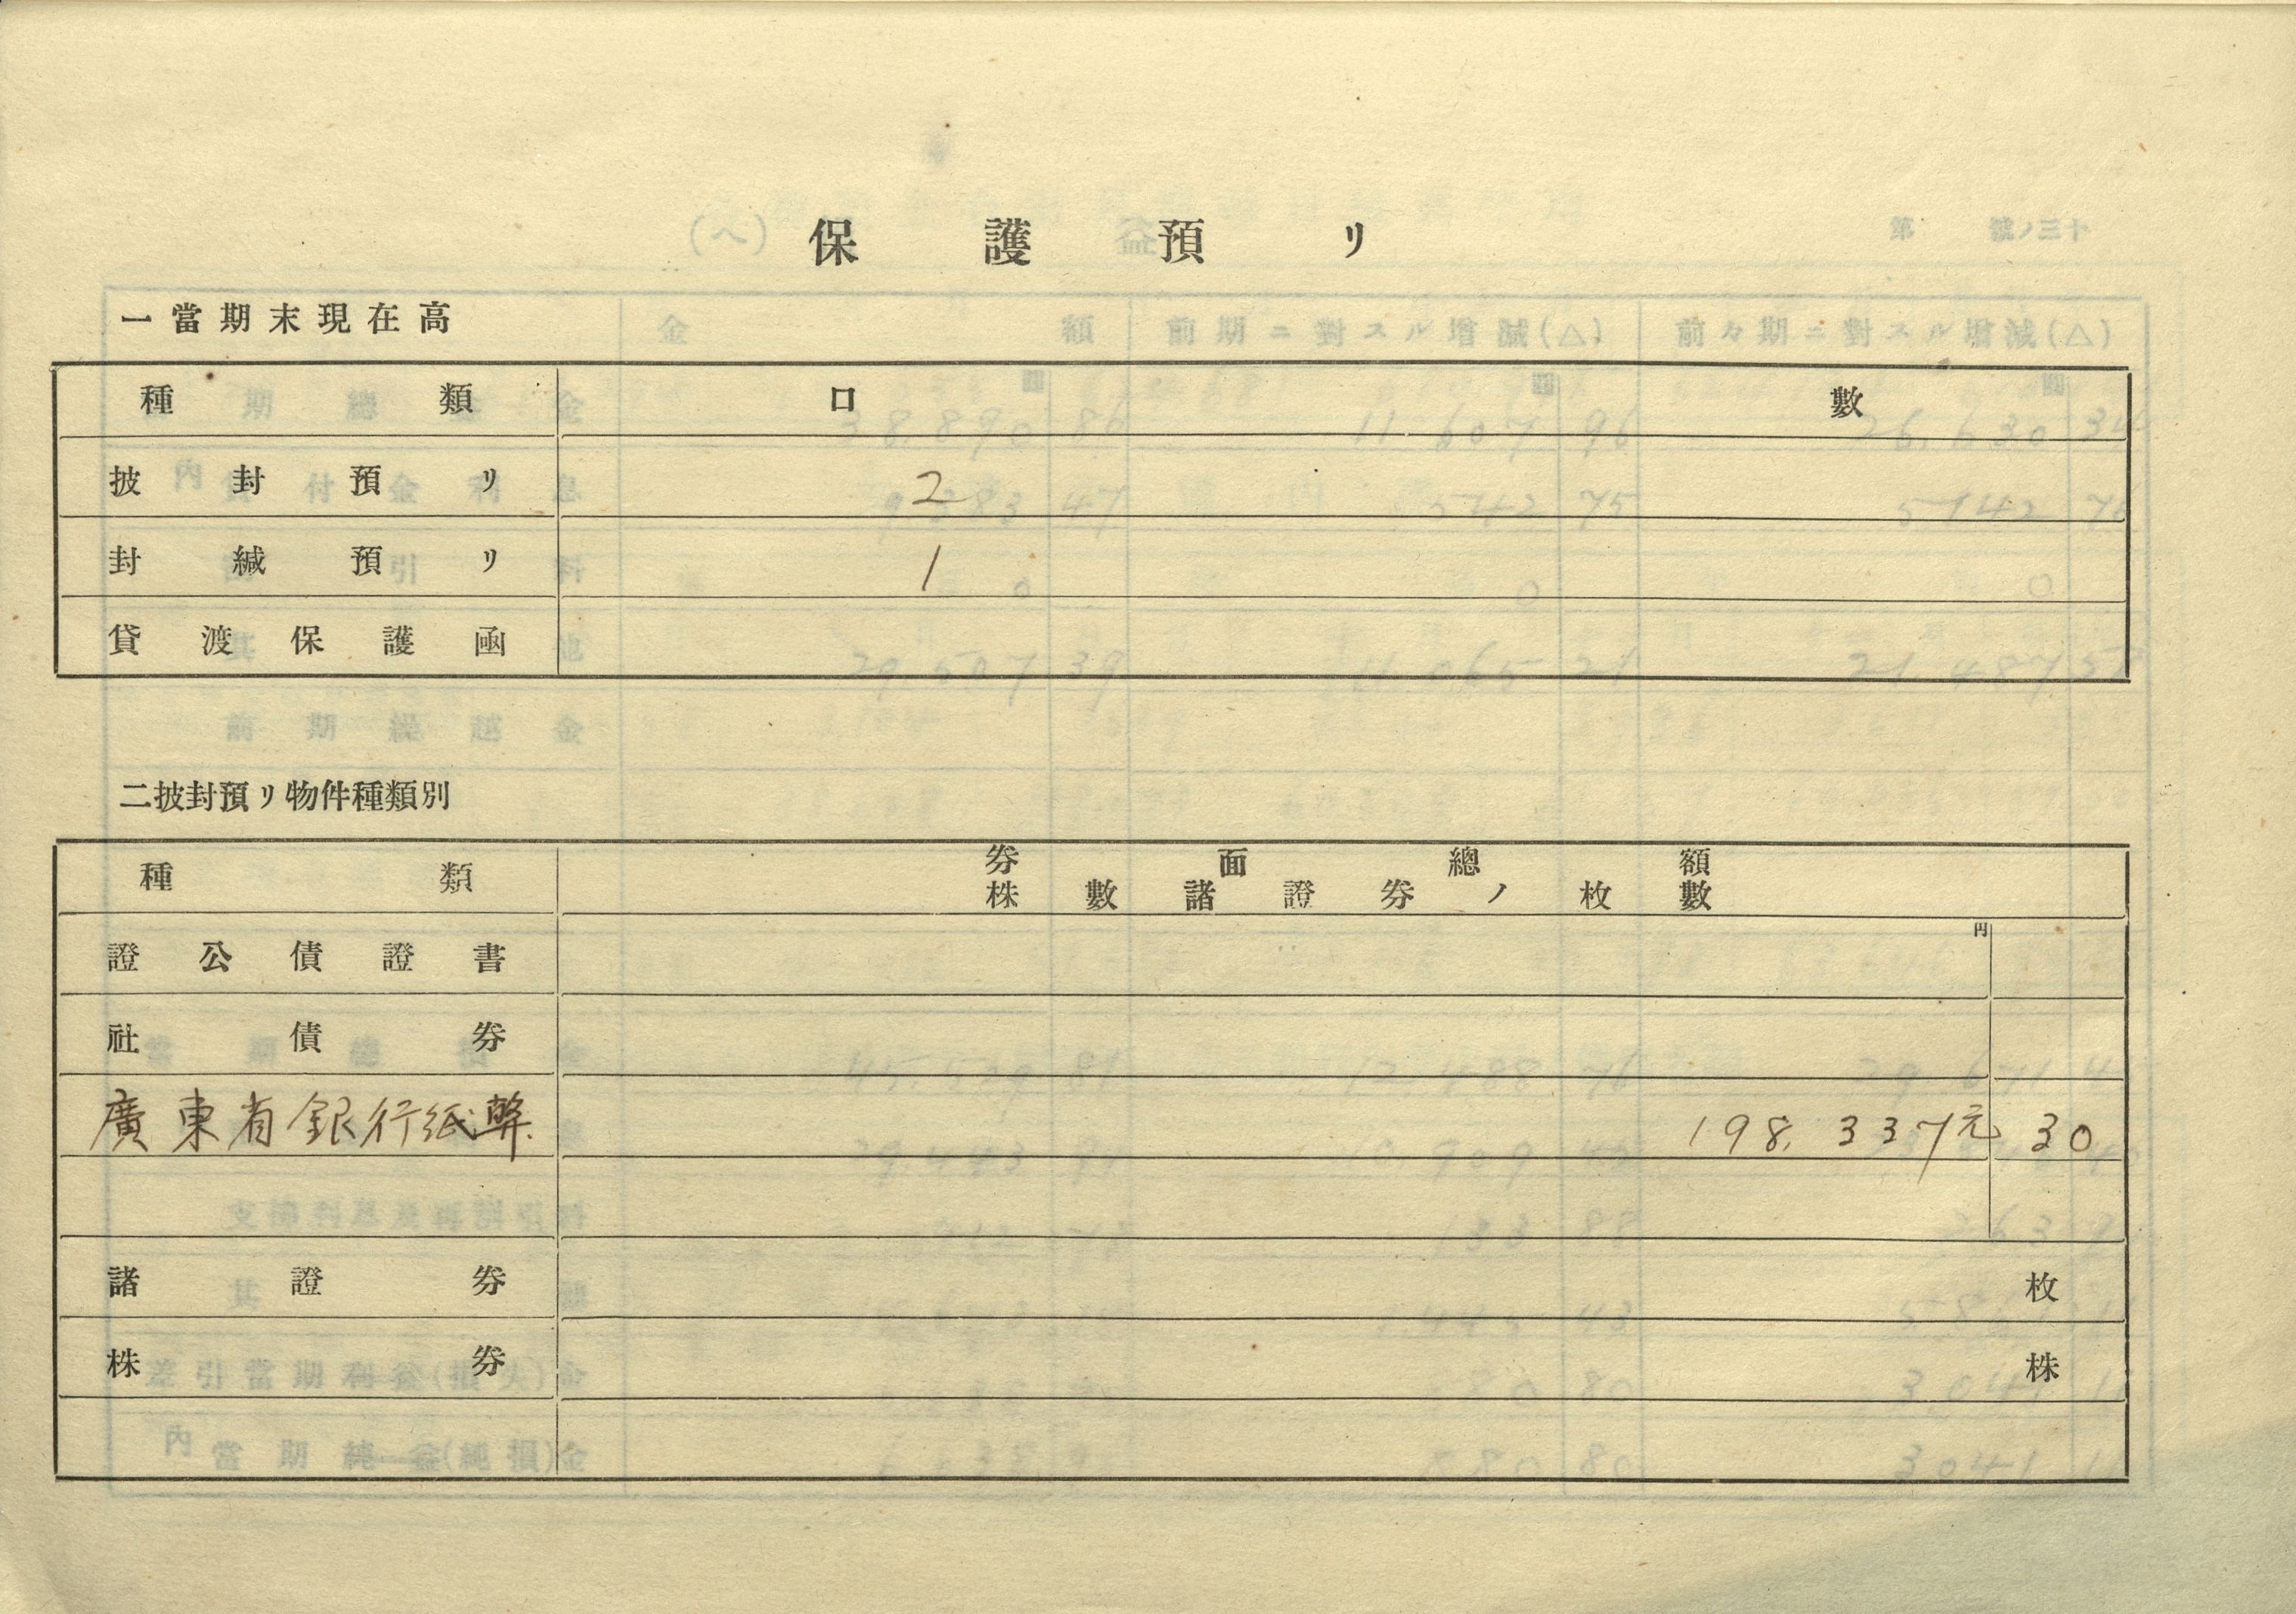 保護預リ
一當期末現在高
種類 口數
披封預リ 2
封緘預リ 1
貸渡保護凾
二披封預リ物件種類別
種類 券面總額
株數諸證券ノ枚數
證公債證書 円
社債券
廣東省銀行紙幣 198,337元30
諸證券 枚
株券 株